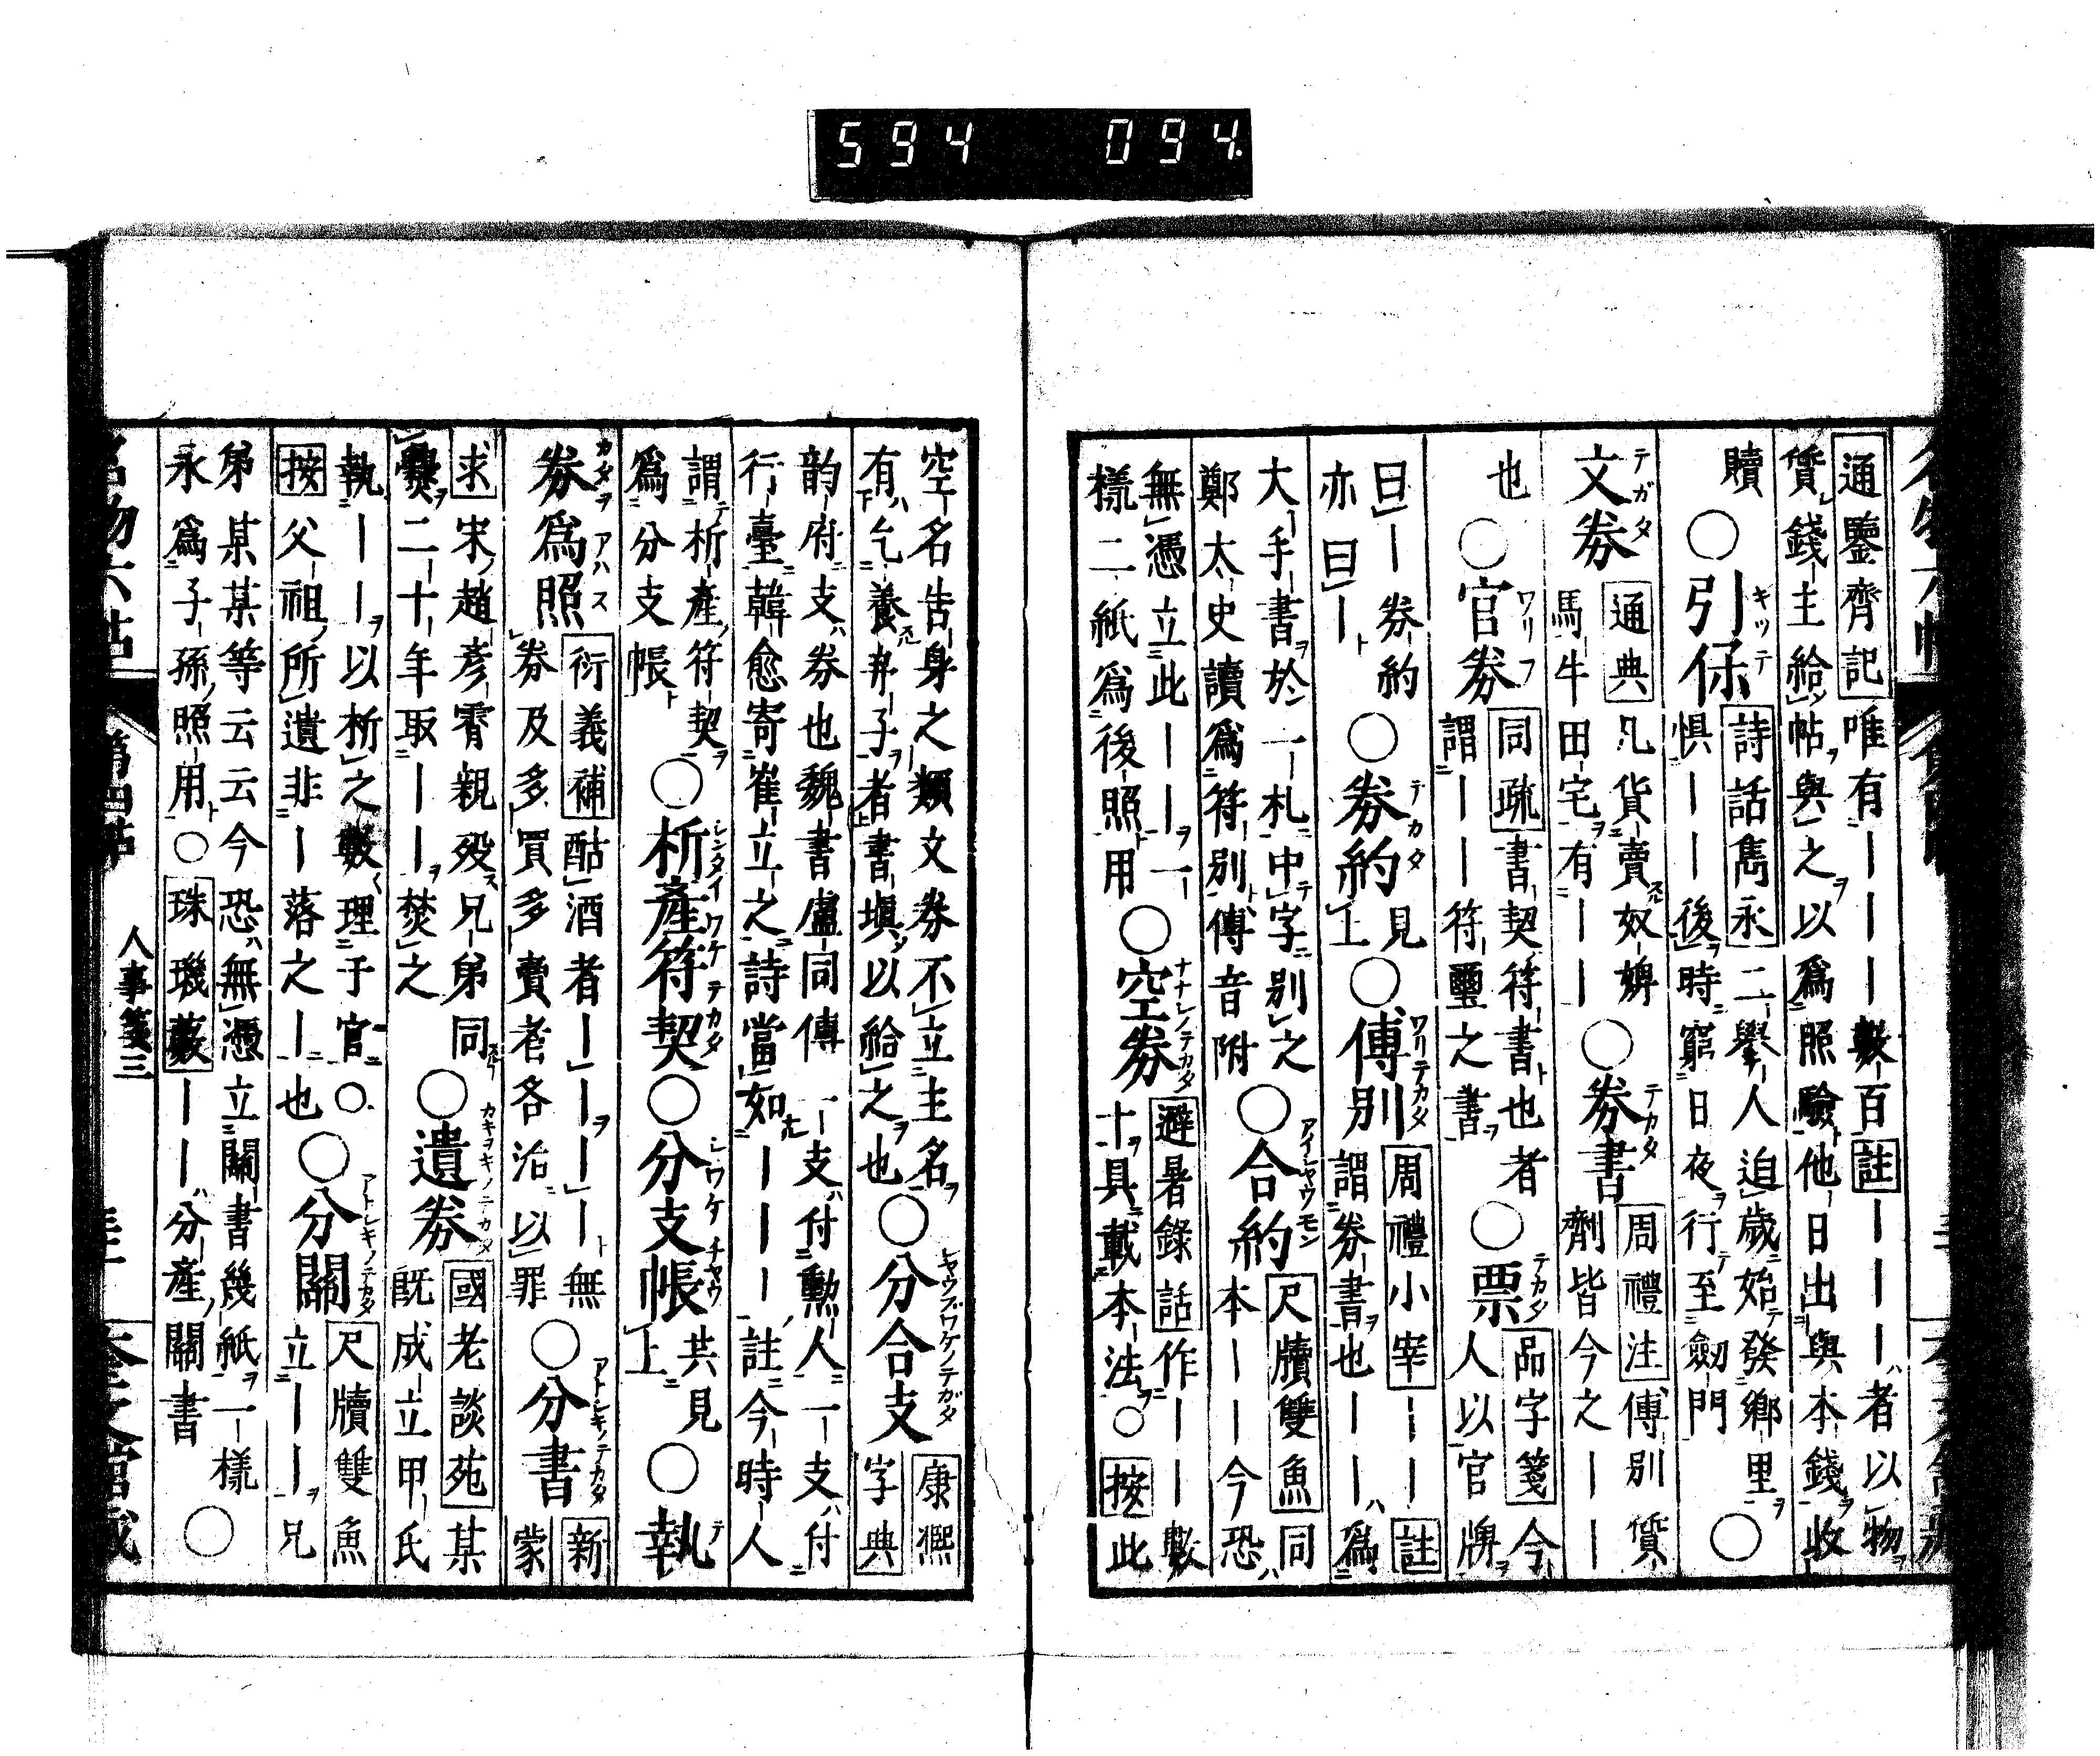 594 094
通鑒齊記唯有一一一一數百註一一一一者以物
賃錢主給帖與之以爲照驗他日出與本錢收
贖○引保詩話雋永二擧人迫歲始發鄉里
惧一一後時窮日夜行至劒門○
文券通典凡貨賣奴婢
馬牛田宅有一一○券書周禮注傅別質
劑皆今之一一
也○官券同疏書契符書也者
謂一一一符璽之書○票品字箋今
人以官牌
曰一券約
亦曰一○券約見上○傅別周禮小宰一一註
謂券書也一一爲
大手書於一札中字別之
鄭太史讀爲符別傅音附○合約尺牘雙魚同
本一一今恐
無憑立此一一一
樣二紙爲後照用○空券避暑錄話作一一數
十具載本法○按此
空名告身之類文券不立主名
有乞養弃子者書塡以給之也○分合支康熈
字典
韵府支券也魏書盧同傳一支付勲人一支付
行臺韓愈寄崔立之詩當如一一一註今時人
謂析產符契○析產符契○分支帳共見上○執
爲分支帳
券爲照衍義補酤酒者一一一無
券及多買多賣者各治以罪○分書新
蒙
求宋趙彥霄親歿兄弟同
爨二十年取一一焚之○遺券國老談苑某
旣成立甲氏
執一一以析之數理于官○
按父祖所遺非一落之一也○分關尺牘雙魚
立一一兄
弟某某等云云今恐無憑立關書幾紙一樣
永爲子孫照用○珠璣藪一一分產關書○
人事箋三